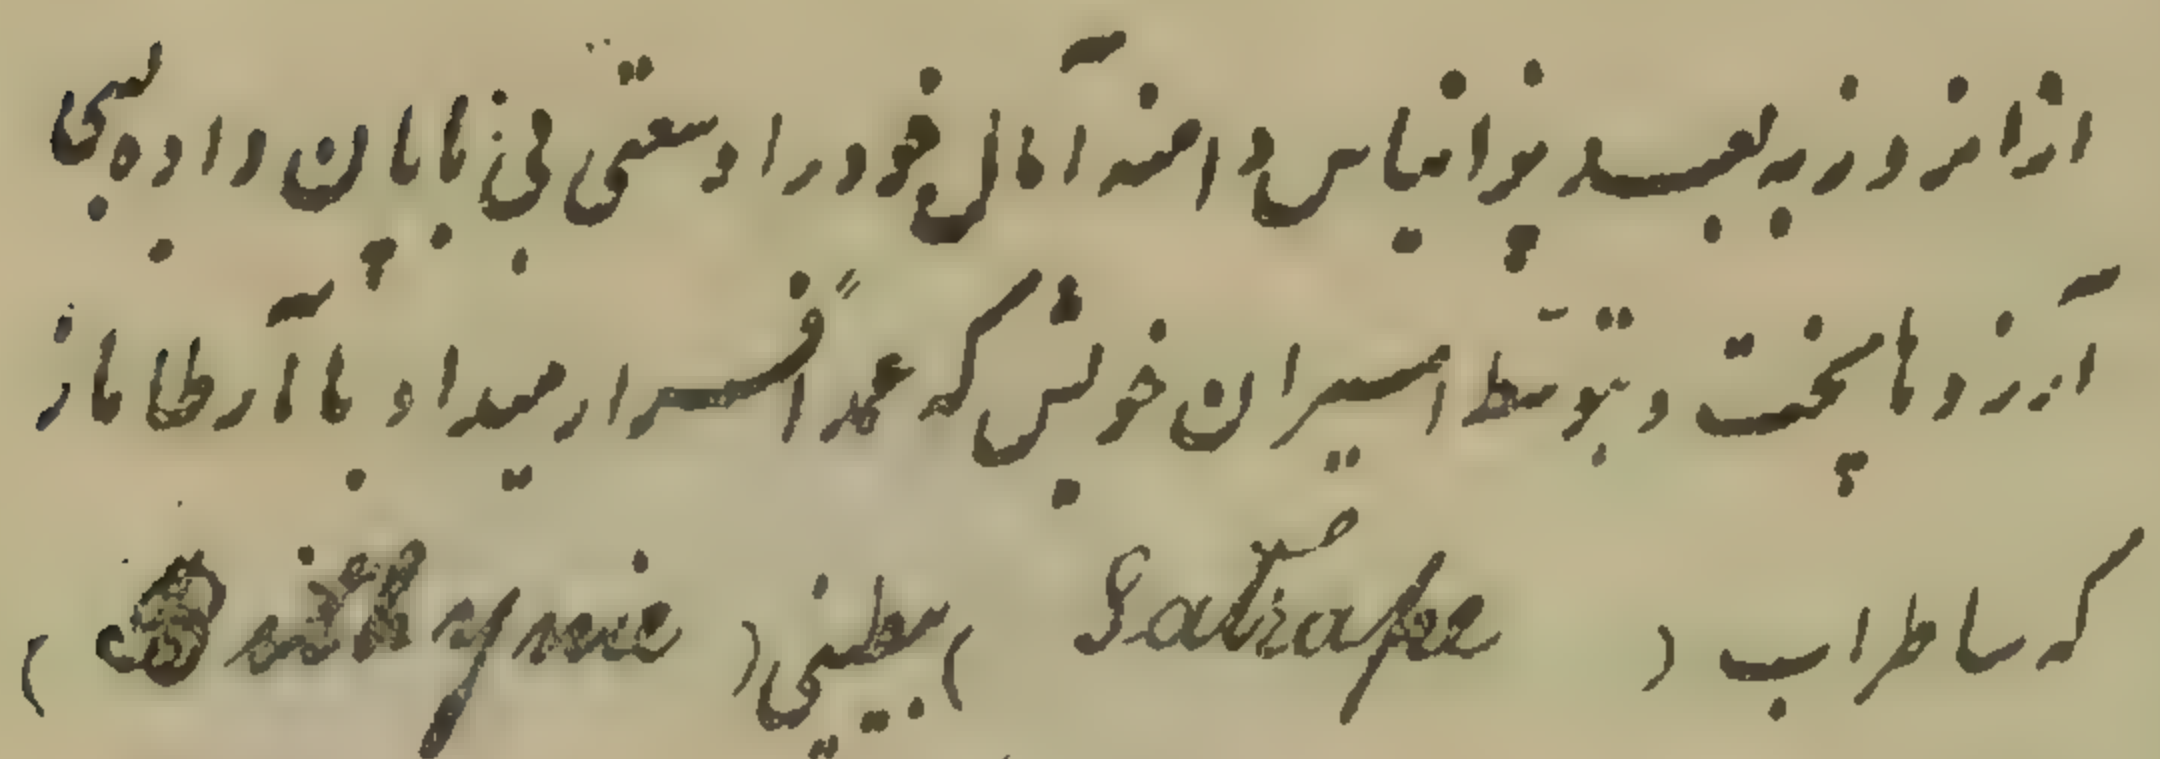 ازانروز ببعد پوزانیاس دامنه آمال خود را وسعتی بی پایان داده بسی
آرزوها پخت و بتوسّط اسیران خویش که عمداً فسرار میداد با آرطاباز
که ساطراب (Satrape) بیطینی (Bithynie)